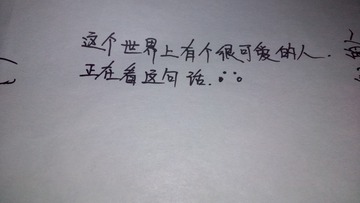 这个世界上有个很可爱的人.
正在看这句话.